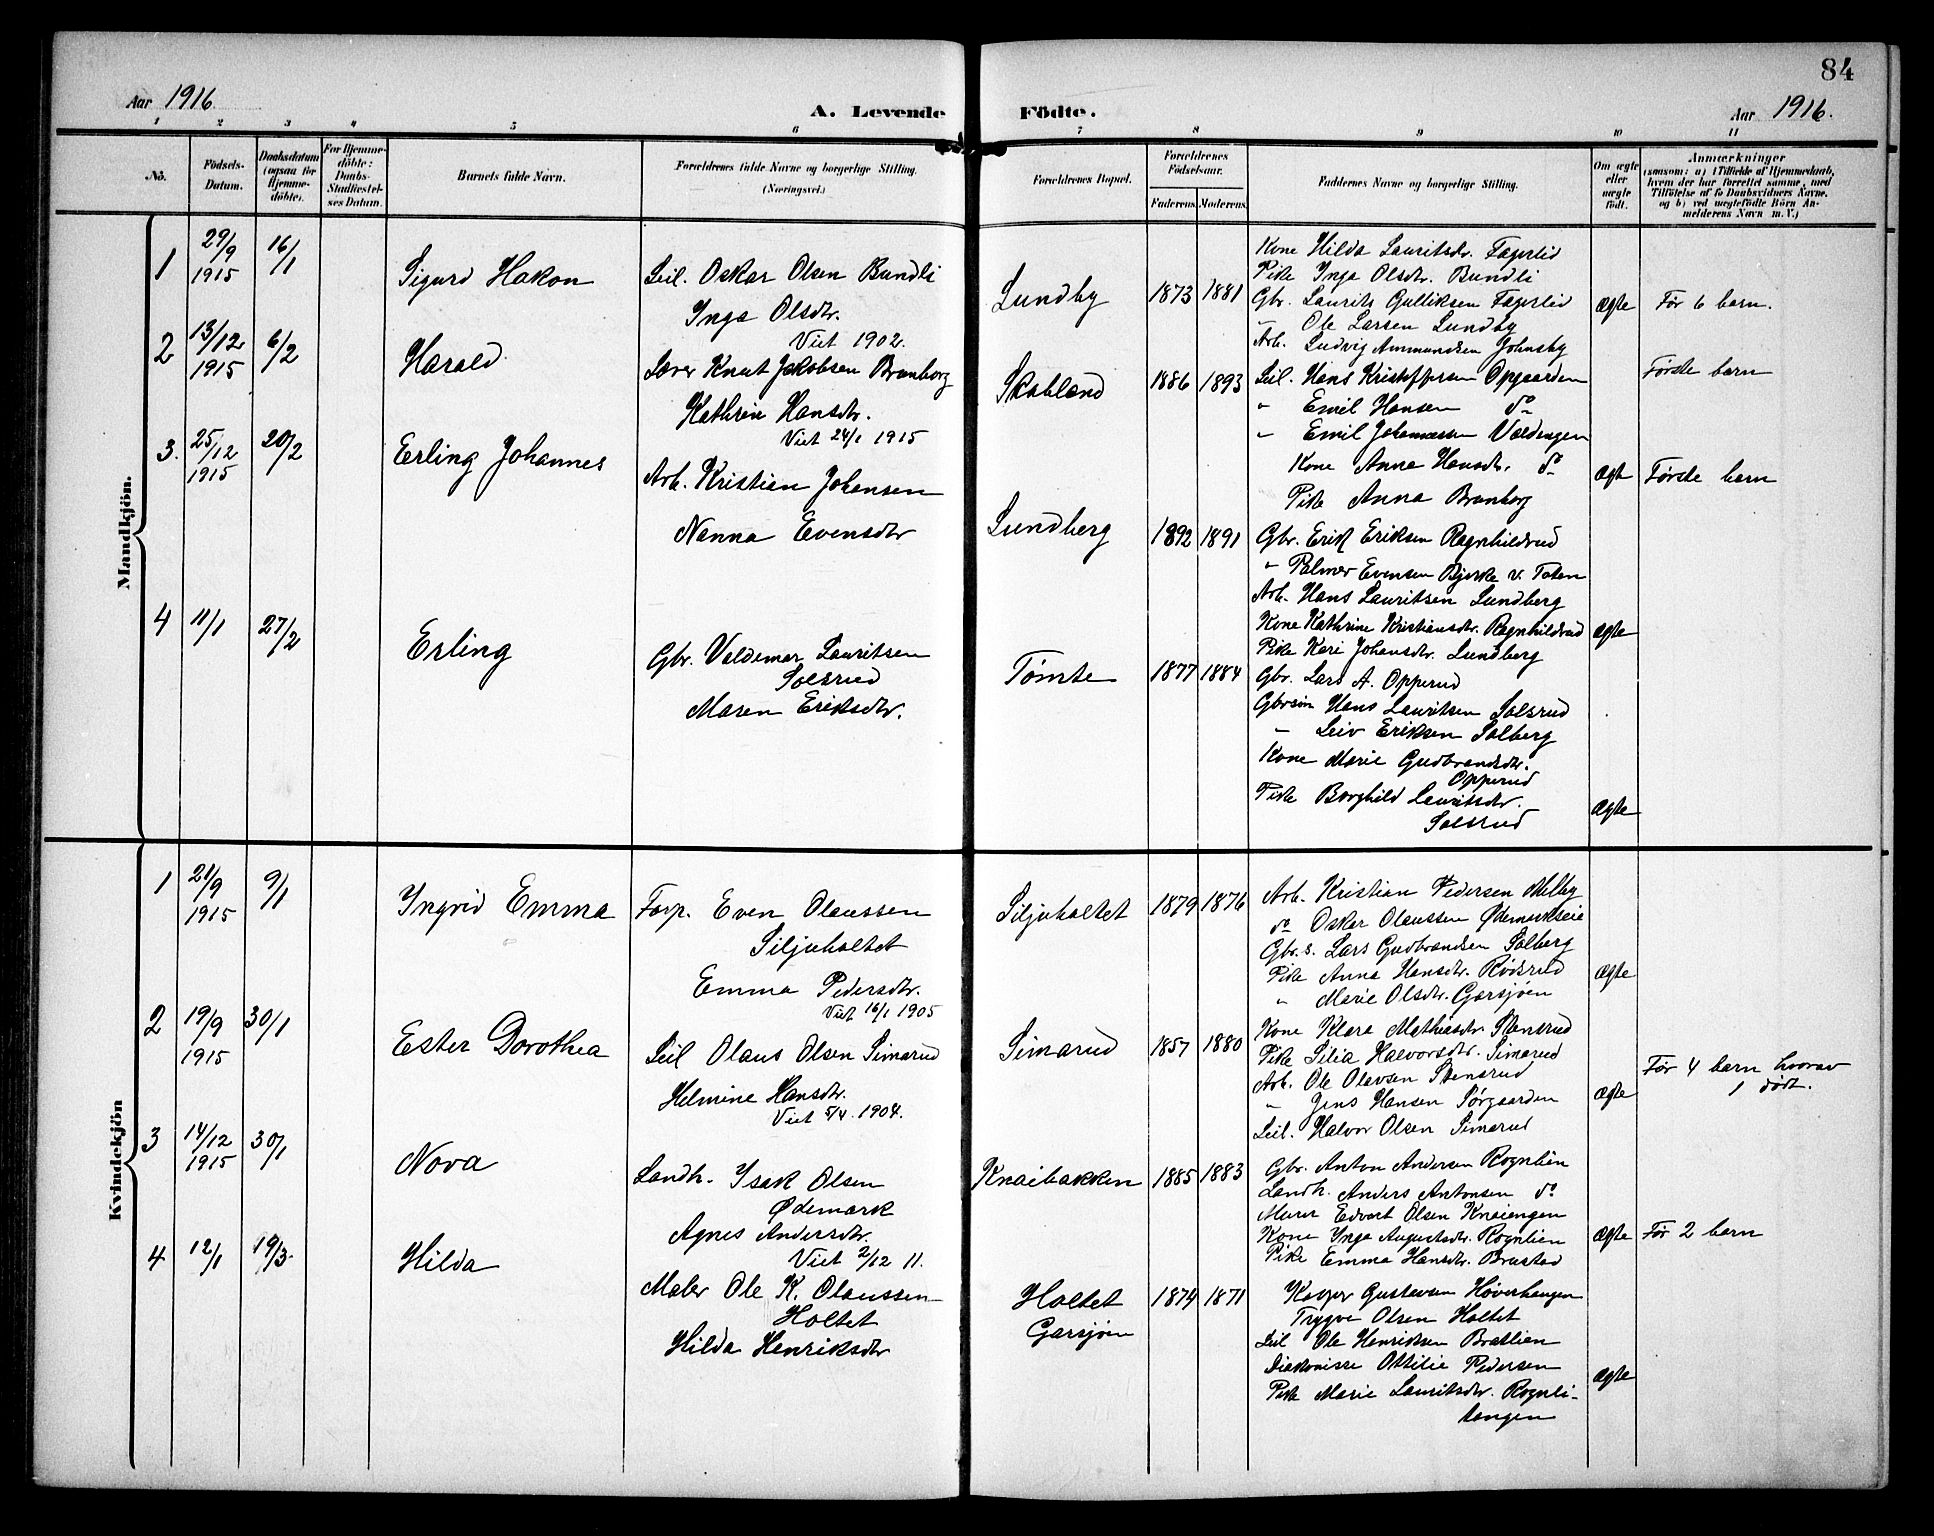 84
Aar 1916.
A. Levende Födte.
Aar 1916.
1 2 3 4 5 6 7 8 9 10 11
No.
Födsels-Datum.
Daabsdatum (ogsaa for Hjemme-döbte).
For Hjemme-döbte: Daabs-Stadfæstel-ses Datum.
Barnets fulde Navn.
Forældrenes fulde Navne og borgerlige Stilling.
(Næringsvei.)
Forældrenes Bopæl.
Forældrenes Födselsaar.
Faderens. Moderens.
Faddernes Navne og borgerlige Stilling.
Om ægte eller uægte födt.
Anmærkninger
(saasom: a) i Tilfælde af Hjemmedaab, hvem der har forrettet samme, med Tilföielse af to Daabsvidners Navne, og b) ved uægtefödte Börn An-melderens Navn m. V.)
Mandkjön.
1 29/9 1915 16/1 Sigurd Hakon
Leil. Oskar Olsen Bundli
Inga Olsdtr.
Viet 1902.
Lundby 1873 1881
Kone Hilda Lauritsdr. Fagerlid
Pike Inga Olsdtr. Bundli
Gbr. Laurits Gulliksen Fagerlid
" Ole Larsen Lundby
Arb. Ludvig Ammundsen Johnsby
Ægte Før 6 barn.
2 13/12 1915 6/2 Harald
Knut Jakobsen Branborg
Kathrine Hansdtr.
Viet 24/1 1915
Skabland 1886 1893
Leil. Hans Kristoffersen Opgaarden
" Emil Hansen do
" Emil Johannessen Valdengen
Kone Anna Hansdtr. do
Pike Anna Branborg
Ægte Første barn
3. 25/12 1915 20/2 Erling Johannes
Arb. Kristian Johansen
Nanna Evensdtr
Lundberg 1892 1891
Gbr. Erik Eriksen Ragnhildrud
" Palmer Evensen Bjerke v. Toten
Arb. Hans Lauritsen Lundberg
Kone Kathrine Kristiansdtr. Ragnhildrud
Pike Kari Johansdtr. Lundberg
Ægte Første barn
4 11/1 27/2 Erling
Gbr. Valdemar Lauritsen
Solsrud
Maren Eriksdtr.
Tømte 1877 1884
Gbr. Lars A. Opperud
Gbrsøn Hans Lauritsen Solsrud
" Leiv Eriksen Solberg
Kone Marie Gudbrandsdtr.
Opperud
Pike Borghild Lauritsdtr.
Solsrud
Ægte
Kvindekjön
1 21/9 1915 9/1 Ingrid Emma
Forp. Even Olaussen
Siljuholtet
Emma Pedersdtr.
Viet 16/1 1905
Siljuholtet 1879 1876
Arb. Kristian Pedersen Melby
do Oskar Olaussen Ødemarkseie
Gbr. s. Lars Gudbrandsen Solberg
Pike Anna Hansdtr. Rødsrud
" Marie Olsdtr. Garsjøen
Ægte
2 19/9 1915 30/1 Ester Dorothea
Leil Olaus Olsen Simarud
Helmine Hansdtr.
Viet 5/4 1904.
Simarud 1857 1880
Kone Klara Mathiasdtr. Stensrud
Pike Silia Halvorsdtr. Simarud
Arb. Ole Olavsen Stensrud
" Jens Hansen Sørgaarden
Leil. Halvor Olsen Simarud
Ægte Før 4 barn hvorav
1 dødt.
3 14/12 1915 30/1 Nova
Landh. Isak Olsen
Ødemark
Agnes Andersdtr.
Viet 2/12 11.
Knaibakken 1885 1883
Gbr. Anton Andersen Rognlien
Landh. Anders Antonsen do
Murer Edvart Olsen Knaiengen
Kone Inga Augustsdtr. Rognlien
Pike Emma Hansdtr. Brustad
Ægte Før 2 barn
4 12/1 19/3. Hilda
Maler Ole K. Olaussen
Holtet
Hilda Henriksdtr
Holtet
Garsjøen
1874 1871
Kasper Gustavsen Høverhaugen
Trygve Olsen Holtet
Leil Ole Henriksen Brattlien
Diakonisse Ottilie Pedersen
Pike Marie Lauritsdtr. Rognli-
haugen
Ægte